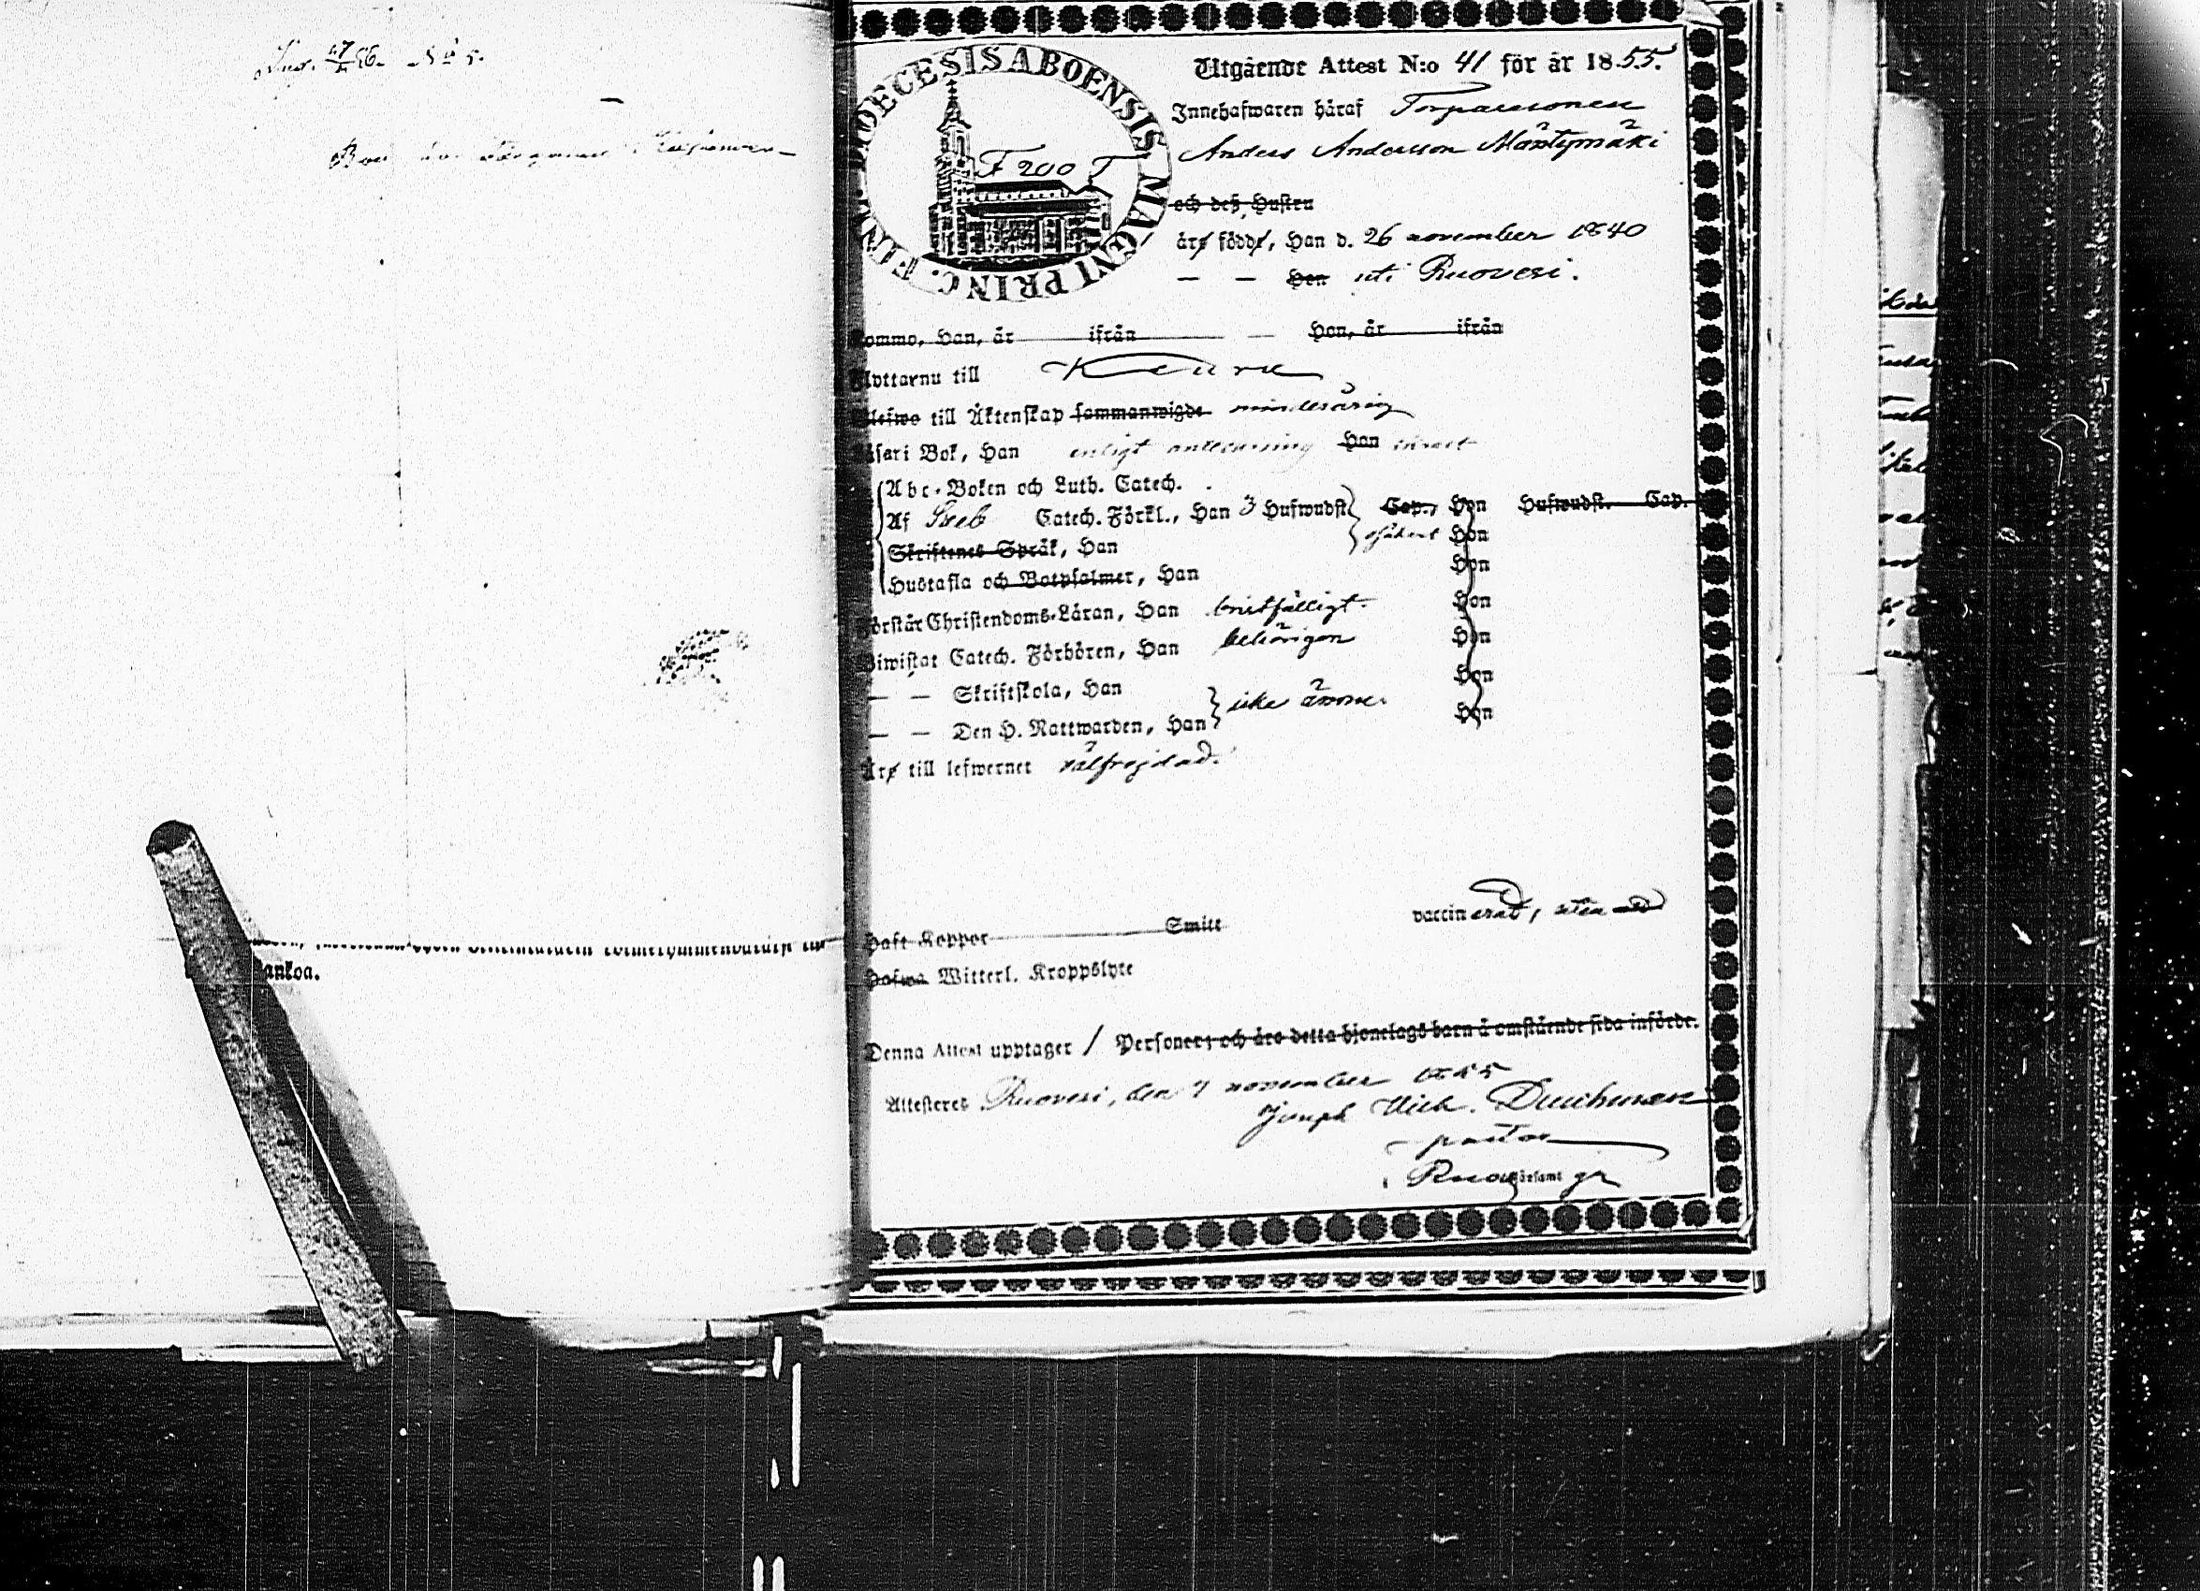 No 5.
ankoa.
DIOECESIS ABOENSIS MAGNI PRINC. FINL.
F 200 T
Utgående Attest N:o 41 för år 1855.
Innehafwaren häraf Torparesonen
Anders Andersson Mäntymäki
och deß Hustru
äro födde, Han d. 26 november 1840
— — Hon uti Ruovesi.
Kommo, Han, år ifrån — Hon, år ifrån
Flyttar nu till Keuru
till Äktenskap sammanwigde minderårig
Läser i Bok, Han enligt antecknining Hon
Abc-Boken och Luth. Catech.
Af Sveb Catech. Förkl., Han 3 Hufwudst. Cap., Hon Hufwudst. Cap.
Skriftenes Språk, Han Hon
Hustafla och Botpsalmer, Han Hon
Förstår Christendoms-Läran, Han bristfälligt. Hon
Biwistat Catech. Förhören, Han behörigen Hon
— — Skriftskola, Han icke ännu. Hon
— — Den H. Nattwarden, Han Hon
Äro till lefwernet välfrejdad.
Haft Koppor Smitt vaccinerad, utan
Hafwa Witterl. Kroppslyte
Denna Attest upptager 1 Personer; och äro detta hjonelags barn å omstående sida införde.
Attesteras Ruovesi, den 7 november 1855
Joseph Wilh. Duchman
pastor